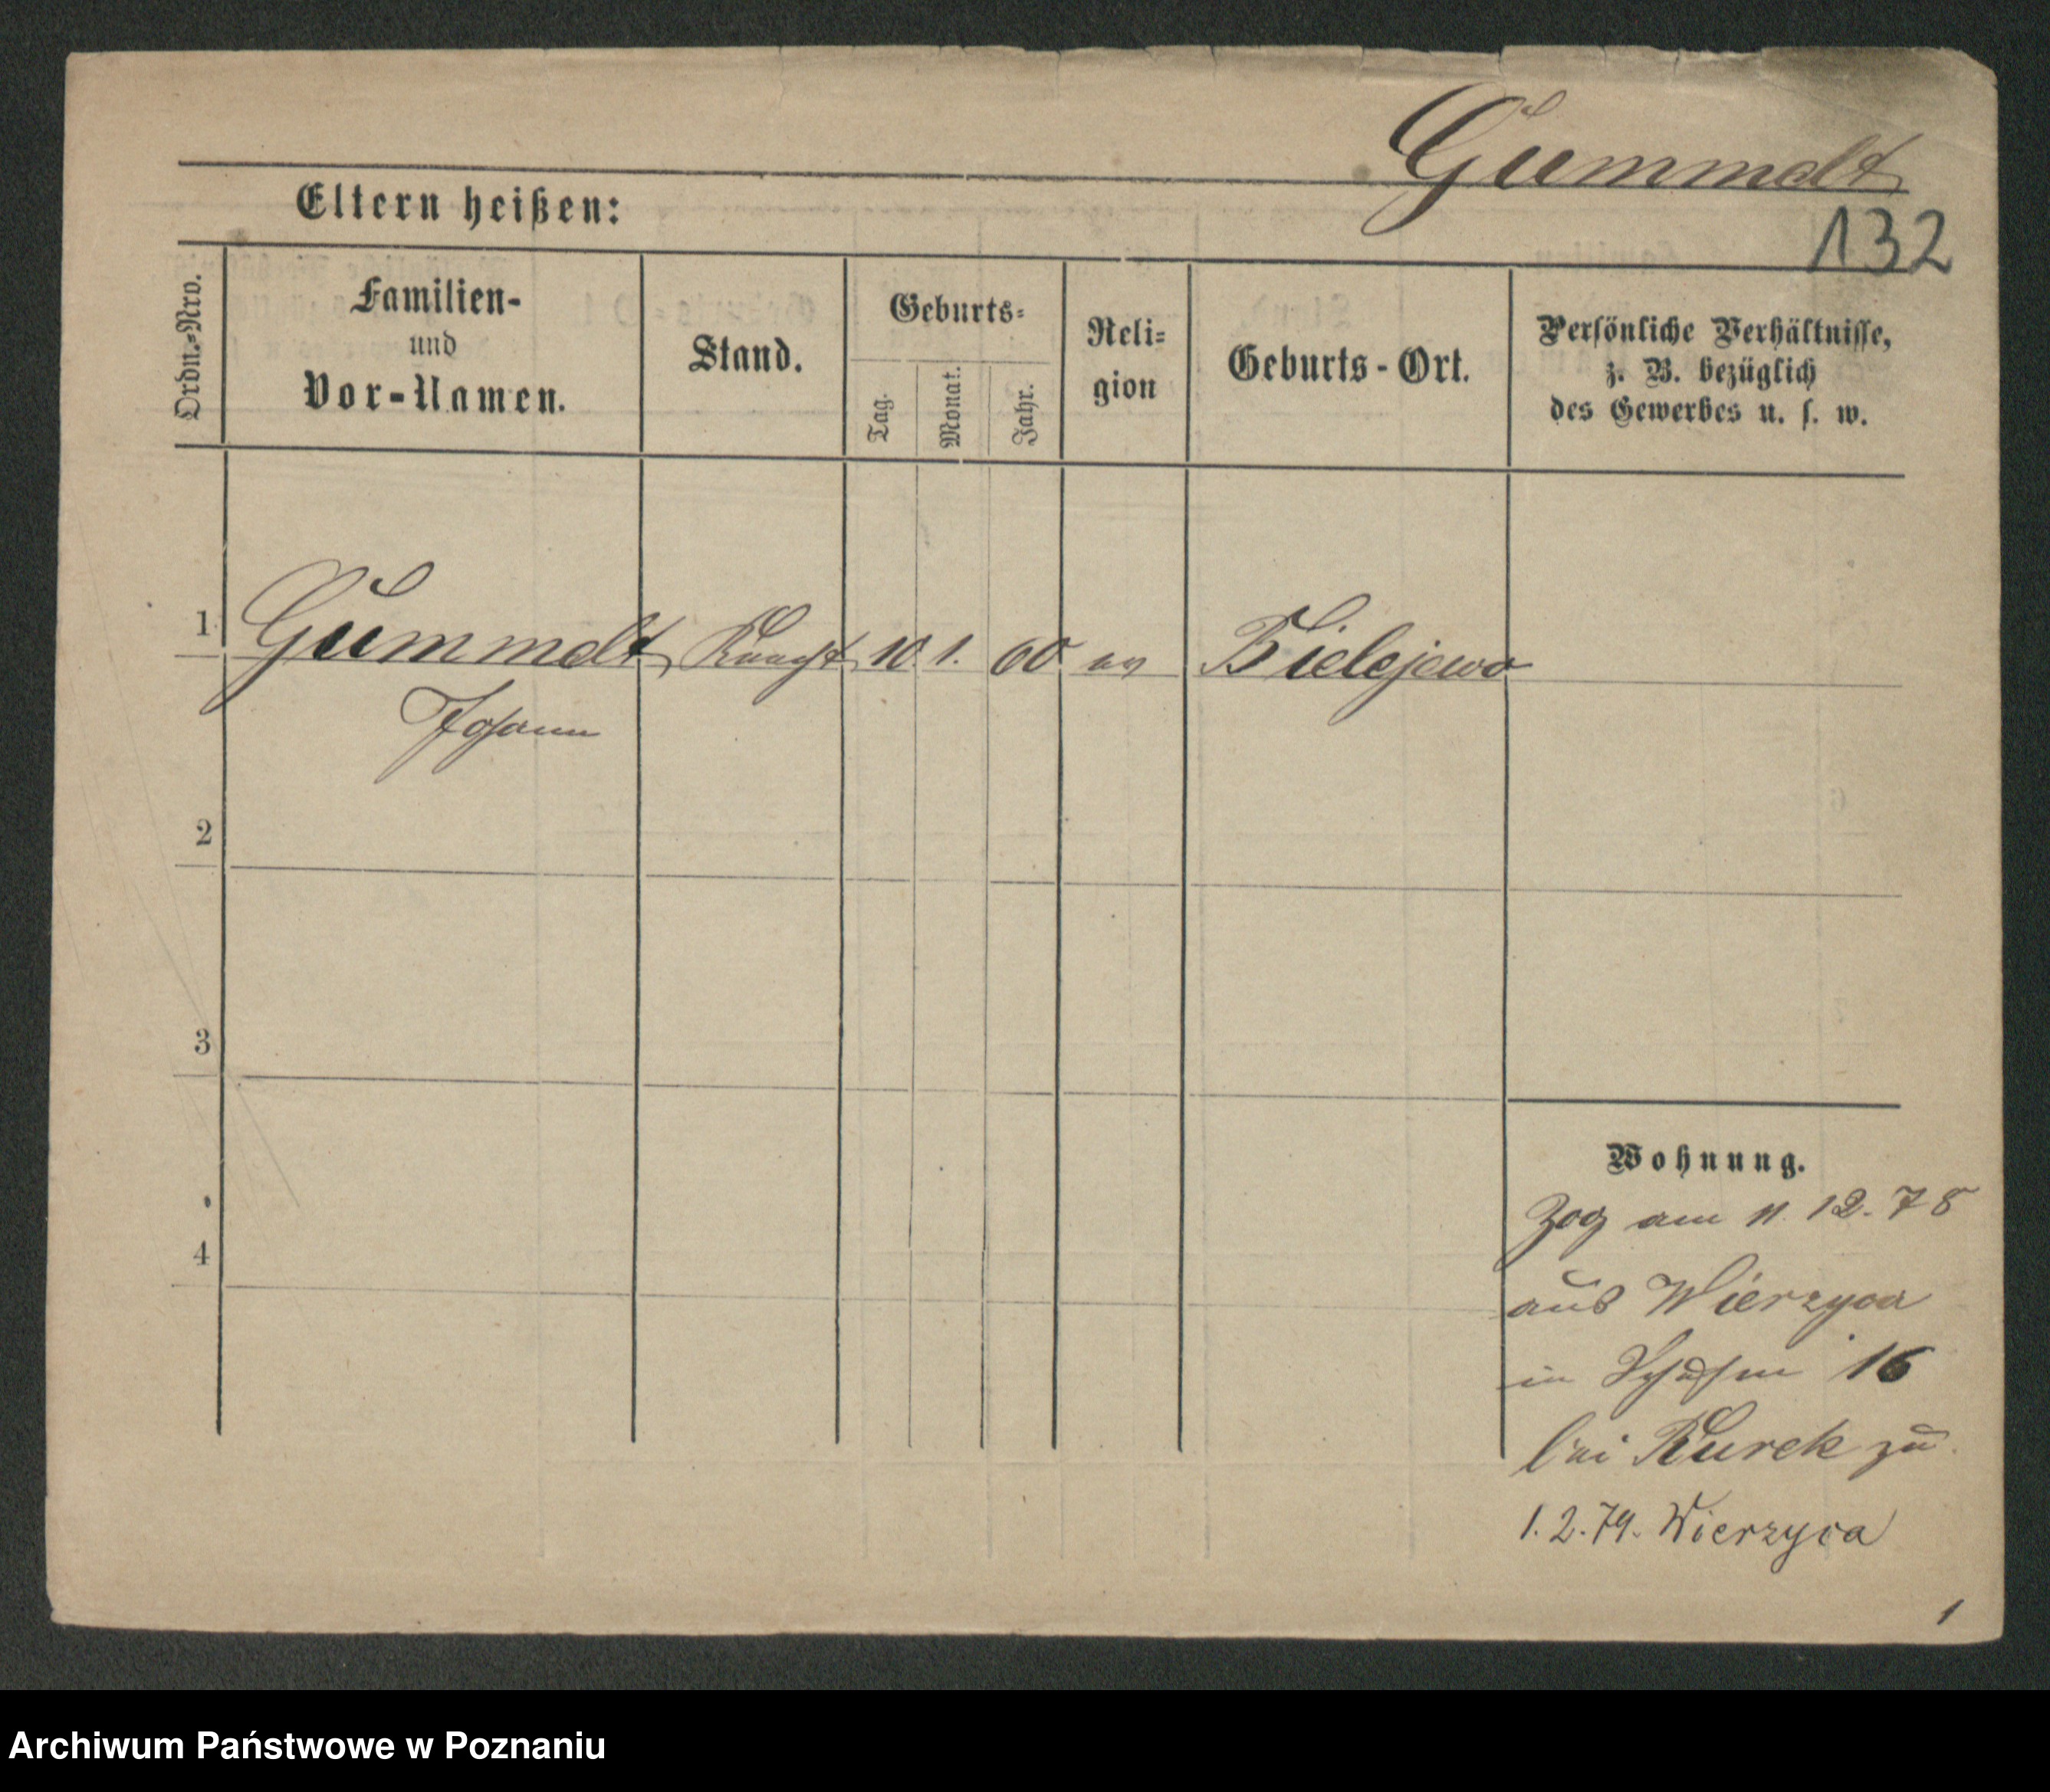 Gummelt
132
Eltern heißen:
Ordn.-Nro.
Familien-
und
Vor-Namen.
Stand.
Geburts-
Tag.
Monat.
Jahr.
Reli-
gion
Geburts-Ort.
Persönliche Verhältnisse,
z. B. bezüglich
des Gewerbes u. s. w.
1 Gummelt Knecht 10. 1. 60 ev Bielejewo
Johann
2
3
4
Wohnung.
Zog am 11. 12. 78
aus Wierzyca
in 16
bei Kurek zu.
1. 2. 79. Wierzyca
1
Archiwum Państwowe w Poznaniu